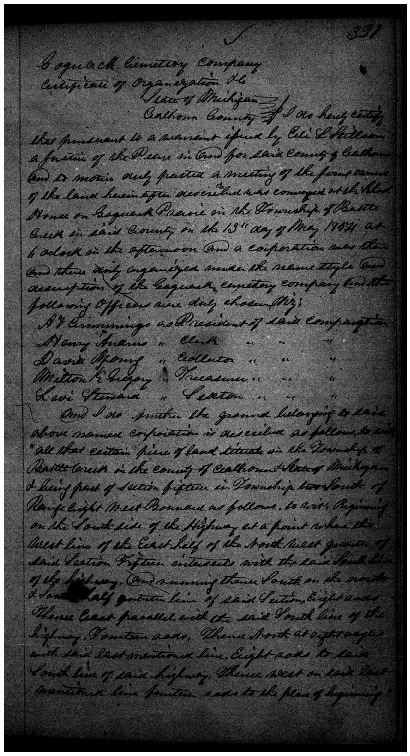 331
Goguack Cemetery Company
Certificate of Organization &c
State of Michigan
Calhoun County } I do hereby certify
that pursuant to a warrant issued by Eli L Stillson
a Justice of the Peace in and for said county of Calhoun
and to me duly a meeting of the owners
of the land hereinafter described was convened at the School
House on Goguack Prairie in the Township of Battle
Creek in said County on the 13th day of May 1854 at
6 oclock in the afternoon and a corporation was then
and there duly organized under the name style and
description of the Goguack cemetery company and the
following Officers were duly chosen, viz:
A T Cummings as President of said
Henry Adams " Clerk " " "
David Young " Collector " " "
Milton Gregory " Treasurer " " "
Levi Steward " Sexton " " "
And I do further the ground belonging to said
above named corporation is described as follows, to wit:
"all that certain piece of land situate in the Township of
Battle Creek in the county of Calhoun & State of Michigan
& being part of section fifteen in Township two South of
Range Eight West Bounded as follows, to wit: Beginning
on the South side of the Highway at a point where the
West line of the East half of the North West quarter of
said Section Fifteen intersects with the said South line
of the highway, and running thence South on the
& half quarter line of said Section, Eight rods,
Thence East parallel with the said South line of the
highway, Fourteen rods, Thence North at right angles
with said last mentioned line, Eight rods to said
South line of said highway, Thence west on said last
mentioned line fourteen rods to the place of beginning"